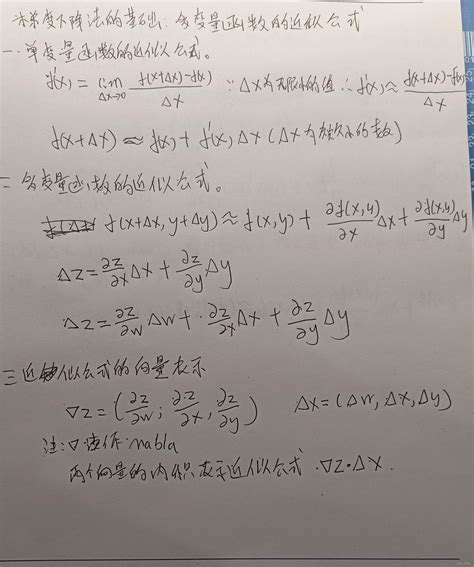 梯度下降法的基础:多变量函数的近似公式
一.单变量函数的近似公式。
f'(x) = lim Δx→0 (f(x+Δx)-f(x))/Δx ∵Δx为无限小的值 ∴f'(x)≈ (f(x+Δx)-f(x))/Δx
f(x+Δx) ≈ f(x)+f'(x)Δx (Δx为 小的数)
二 多变量函数的近似公式。
f(x+Δx, y+Δy)≈f(x,y)+ ∂f(x,y)/∂x Δx+ ∂f(x,y)/∂y Δy
Δz=∂z/∂x Δx+ ∂z/∂y Δy
Δz=∂z/∂w Δw+ ∂z/∂x Δx + ∂z/∂y Δy
三 近似公式的向量表示
∇z=(∂z/∂w, ∂z/∂x, ∂z/∂y) Δx=(Δw,Δx,Δy)
注:∇读作:nabla
两个向量的内积表示近似公式.∇z·Δx.